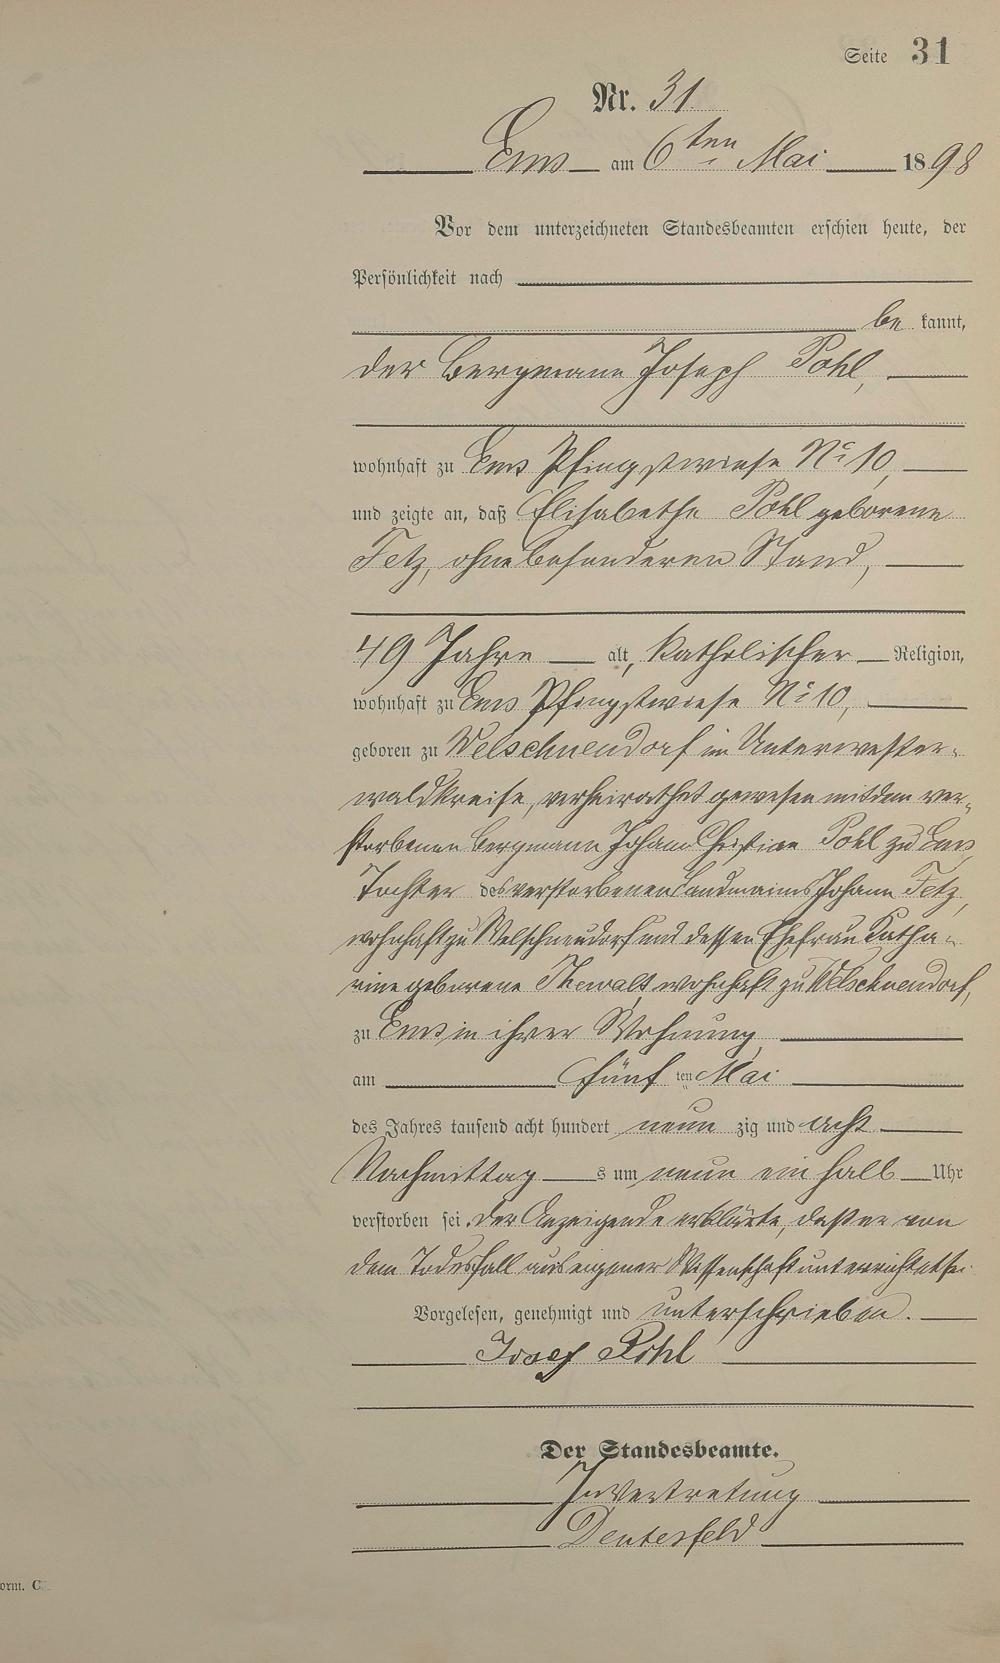 Seite 31
Nr. 31
Ems am 6ten Mai 1898
Vor dem unterzeichneten Standesbeamten erschien heute, der
Persönlichkeit nach
be kannt,
der Bergmann Joseph Pohl,
wohnhaft zu Ems Pfingstwiese No 10,
und zeigte an, daß Elisabetha Pohl geborene
Fetz, ohne besonderen Stand,
49 Jahre alt, katholischer Religion,
wohnhaft zu Ems Pfingstwiese No 10,
geboren zu Welschneudorf im Unterwester-
waldkreise, verheirathet gewesen mit dem ver-
storbenen Bergmann Johann Christian Pohl zu Ems,
Tochter des verstorbenen Landmanns Johann Fetz,
wohnhaft zu Welschneudorf und dessen Ehefrau Katha-
rine geborene Thewalt, wohnhaft zu Welschneudorf,
zu Ems in ihrer Wohnung,
am fünf ten Mai
des Jahres tausend acht hundert neun zig und acht
Nachmittag s um neun ein halb Uhr
verstorben sei. Der Anzeigende erklärte, daß er von
dem Todesfall aus eigener Wissenschaft unterrichtet sei.
Vorgelesen, genehmigt und unterschrieben.
Josef Pohl
Der Standesbeamte.
In Vertretung
orm. C.